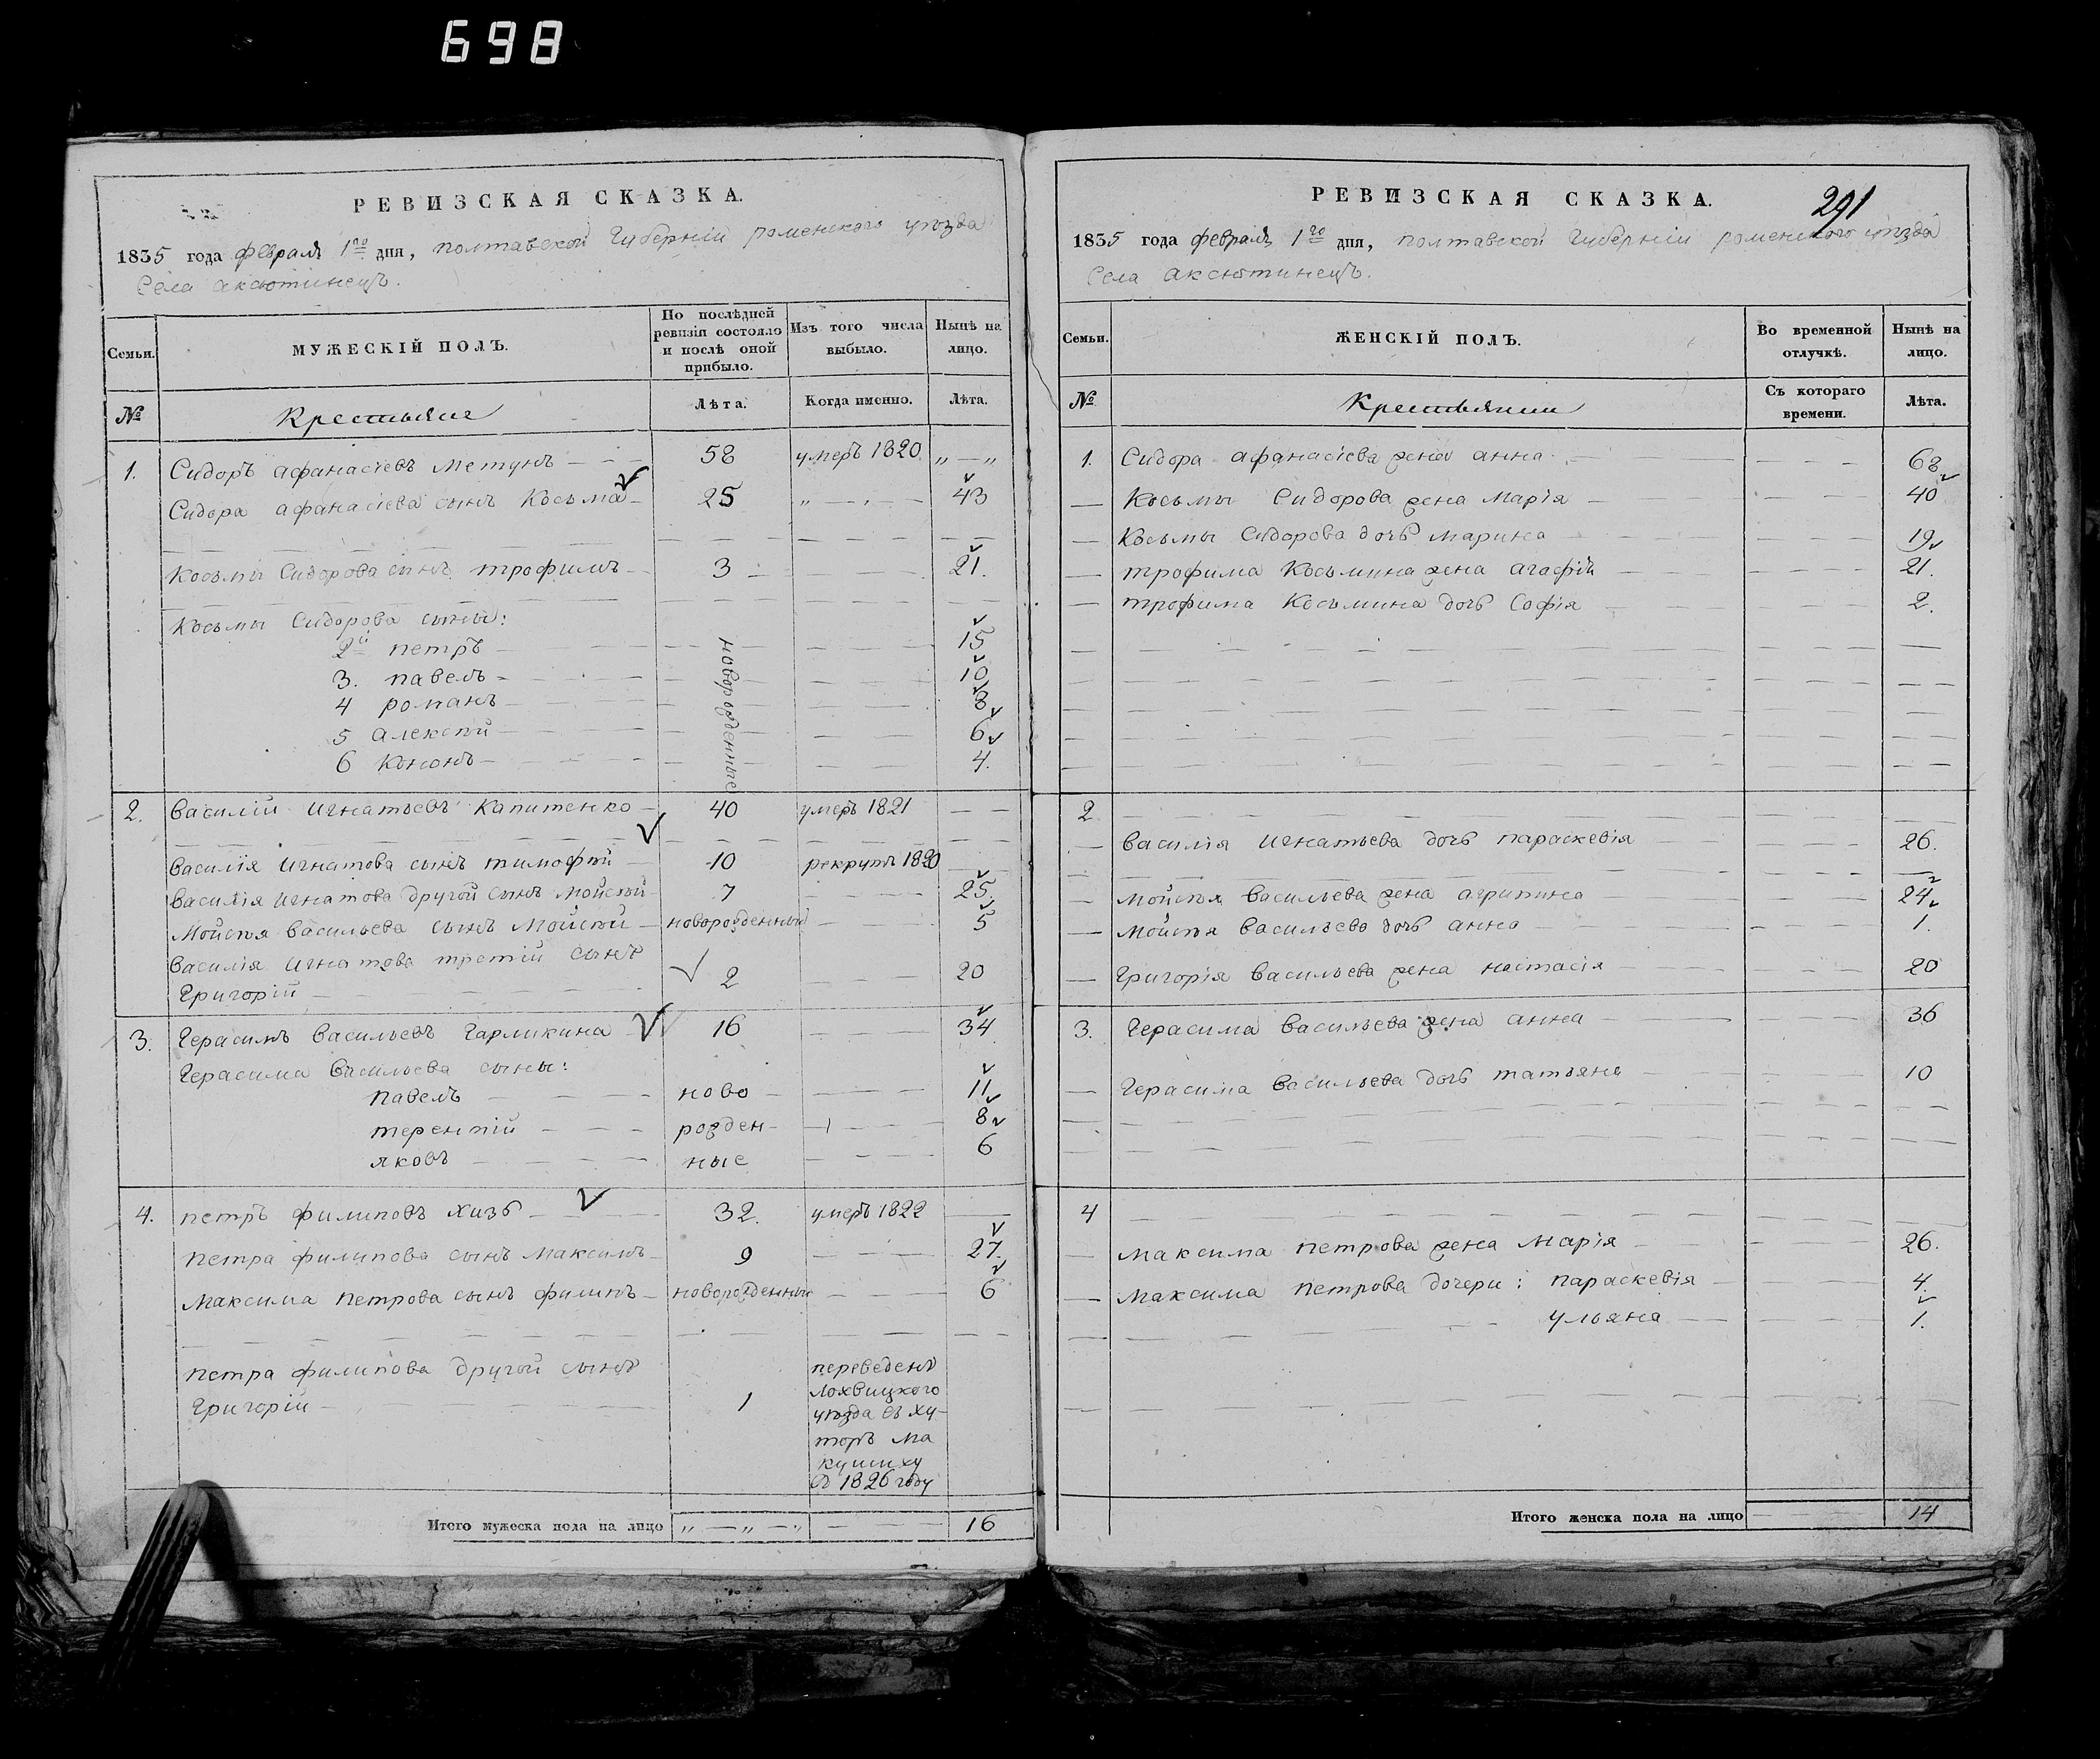 698
РЕВИЗСКАЯ СКАЗКА.
1835 года февраля 1го дня, полтавской Губернiи роменского уѣзда
Села аксютинецъ.
Семьи.
МУЖЕСКIЙ ПОЛЪ.
По послѣдней ревизiи состояло и послѣ оной прибыло.
Изъ того числа выбыло.
Нынѣ на лицо.
№
Крестьяне
Лѣта.
Когда именно.
Лѣта.
1. Сидоръ афанасiевъ 58 умеръ 1820 „ — „
Сидора афанасiева сынъ Косьма 25 „ — „ — 43
Косьмы Сидорова сынъ трофимъ 3 21.
Косьмы Сидорова сыны:
2й петръ новорозденные 15
3. павелъ 10
4 романъ 8
5 алексѣй 6
6 Кононъ 4.
2. Василiй Игнатьевъ Капитенко 40 умеръ 1821
Василiя Игнатова сынъ тимофѣй 10 рекрутъ 1820
Василiя Игнатова другой сынъ Мойсѣй 7 25.
Мойсѣя Васильева сынъ Мойсѣй новорозденный 5
Василiя Игнатова третiй сынъ
Григорiй 2 20
3. Герасимъ Васильевъ Гармикина 16 34
Герасима Васильева сыны:
павелъ ново 11
терентiй розден- 8
яковъ ные 6
4. петръ филиповъ хизь 32. умеръ 1822
петра филипова сынъ максимъ 9 27.
максима петрова сынъ филипъ новорозденный 6
петра филипова другой сынъ переведенъ
Григорiй 1 Лохвицкого
уѣзда въ ху-
торъ Ма
кушиху
въ 1826 году
Итого мужеска пола на лицо „ — „ — „ 16
РЕВИЗСКАЯ СКАЗКА.
291
1835 года февраля 1го дня, полтавской Губернiи роменского уѣзда
Села аксютинецъ.
Семьи.
ЖЕНСКIЙ ПОЛЪ.
Во временной отлучкѣ.
Нынѣ на лицо.
№
Крестьянки
Съ котораго времени.
Лѣта.
1. Сидора афанасiева зена анна 68
Косьмы Сидорова зена Марiя 40
Косьмы Сидорова дочь Марина 19
трофима Косьмина зена агафiя 21.
трофима Косьмина дочь Софiя 2.
2
Василiя Игнатьева дочь параскевiя 26.
Мойсѣя Васильева зена агрипина 24
Мойсѣя Васильева дочь анна 1.
Григорiя Васильева зена настасiя 20
3. Герасима Васильева зена анна 36
Герасима Васильева дочь татьяна 10
4
Максима петрова зена Марiя 26.
Максима петрова дочери: параскевiя 4.
ульяна 1.
Итого женска пола на лицо 14